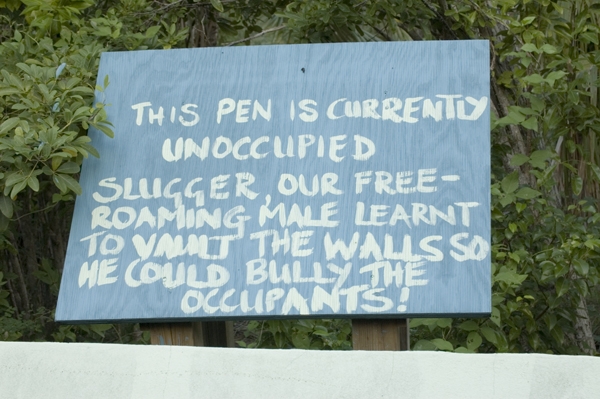 THIS PEN IS CURRENTLY
UNOCCUPIED
SLUGGER, OUR FREE-
ROAMING MALE LEARNT
TO VAULT THE WALLS SO
HE COULD BULLY THE
OCCUPANTS!